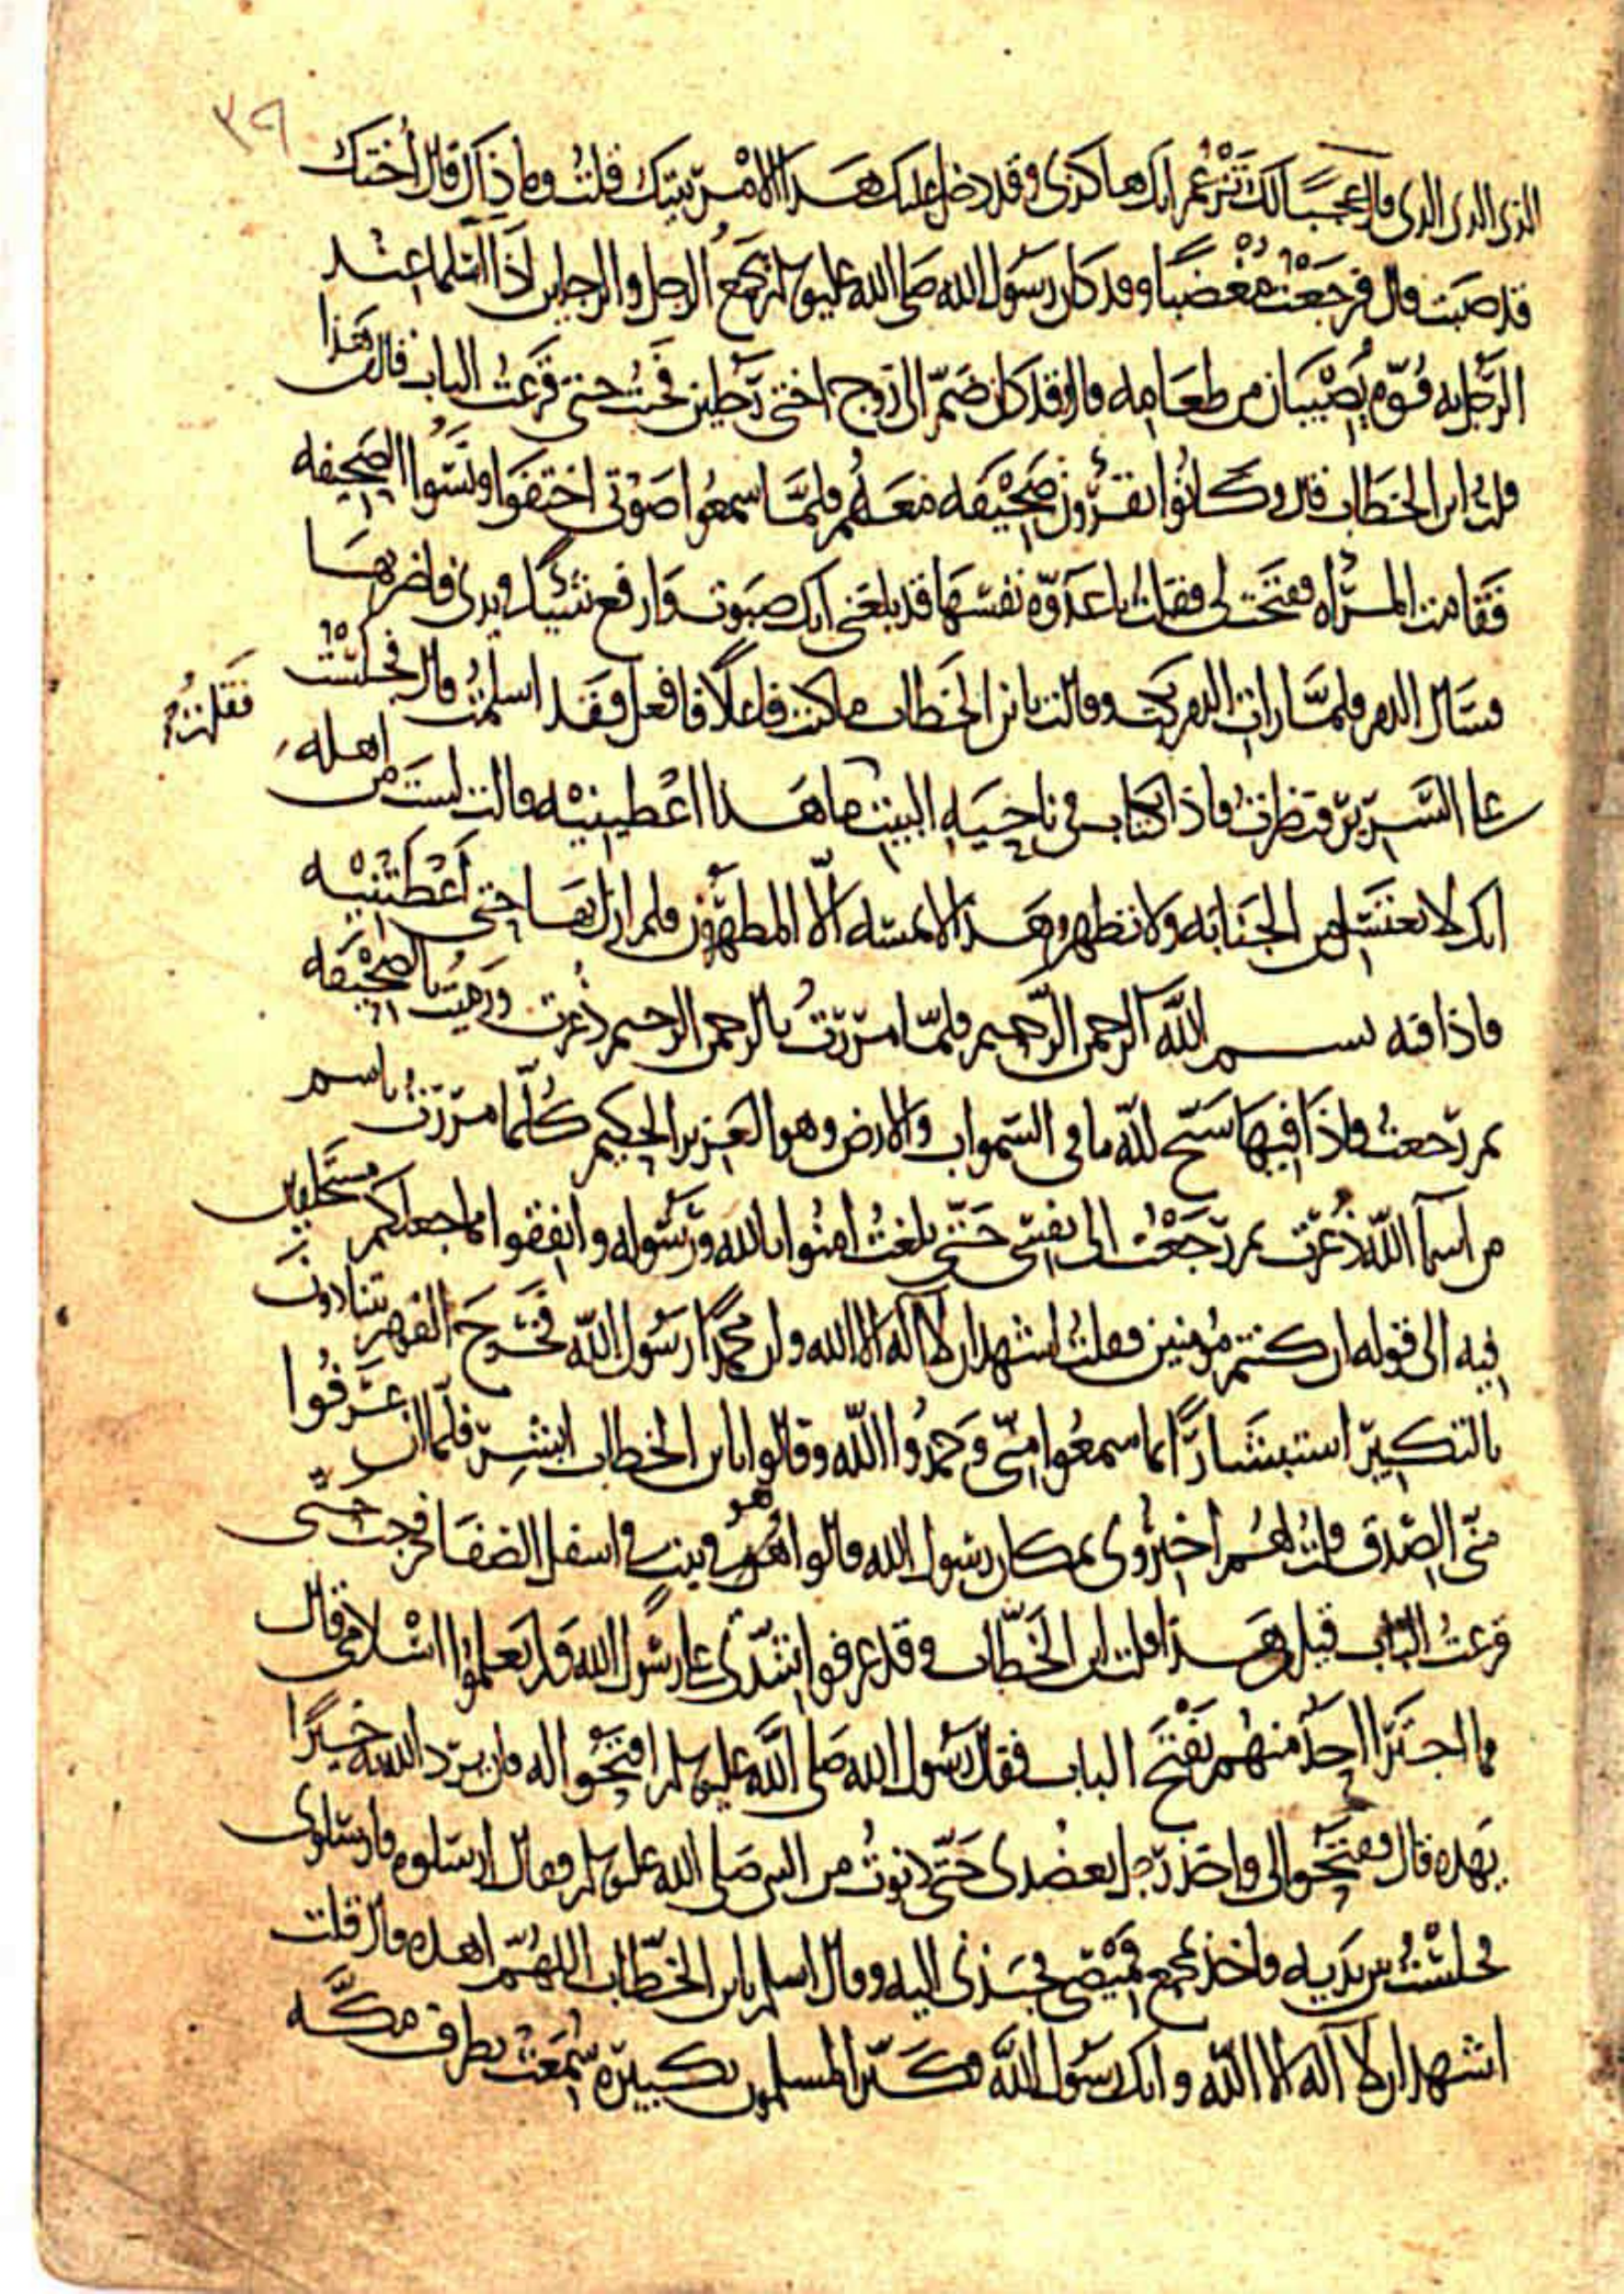 ٣٩
الذي الذي الذي قال عجبًا لك تَزْعُم انك هاكذى وقد دخل عليك هذا الامْر بيتك قلتُ وما ذاك قال أختك
قد صبت قال فرجَعْتُ مُغْضَبًا وقد كان رسُول الله صلى الله عليه وسلم يجمعُ الرجل والرجلين اذَا اسْلما عنْد
الرَّجل به قُوّه يُصْيبان من طعَامه قال وقد كان ضَمّ الى زوج اختى رَجُلين فجئت حتى قرعتُ الباب قال من هَذا
قلتُ ابن الخطاب قال وكانُوا يقرَؤن صَحِيْفَه معَهُم فلمَّا سمعُوا صَوْتي اختفَوا ونسُوا الصَّحِيفه
فَقامت المرْأه ففتحَت لي فقلتُ يا عدَوّه نفسهَا قد بلغني انك صبوت وَارفع شيئا في يدي فاضربهَا
فسَال الدم فلمَّا رات الدم بكت وقالت يا بن الخَطاب ما كنتَ فاعلًا فافعل فقد اسلمتُ قال فجلسْتُ
على السَّرير فنظرتُ فاذا كتاب في ناحِيَه البيت ما هَذا اعْطِينيْه قالت لستَ من اهله
فَقلتُ
انك لا تغتسل من الجنَابَه ولا تطهر وهَذا لا يمسّه الّا المطهَّرُون فلم ازل بهَا حتى أعْطَتْنيْه
فاذا فيه بسم الله الرحمن الرَّحيم فلمّا مَرَرتُ بالرحمن الرحيم ذُعِرت ورَميتُ بالصَّحِيْفَه
ثم رَجعتُ فاذَا فيهَا سَبّح لله ما في السّموات والارض وهو العَزيز الحكيم كُلّما مرَرتُ باسم
من اسمآ الله ذُعِرْت ثم رَجَعْتُ الى نفسِي حَتّي بلغتُ امنُوا بالله ورَسُوله وانفقوا مما جعلكم مستخلفين
فيه الى قوله ان كنتم مُؤمنين فقلتُ اشهد ان لا اله الا الله وان محمدًا رسُول الله فخَرجَ القوم يتبادرونَ
بالتكبيْر استبشارًا بما سمعُوا منّي وَحمدُوا الله وقالوا يا بن الخطاب ابشِر فلمّا ان عَرَفُوا
منّي الصّدق قلتُ لهُم اخبرُوني بمكان رسُول الله قالوا هُو في بيتٍ في اسفل الصّفَا فخرجتُ حتّى
قرعتُ البَاب قيل من هَذا قلت ابن الخَطّاب وقد عرفوا شدّتي على رسُول الله وَلم يعلمُوا اسْلامي قال
فما اجتَرَا احَد منهُم بفَتحَ الباب فقال رسُول الله صَلى الله عليه وسلم افتحُوا له فان يرد الله به خيرًا
يَهْده قال ففتحُوا لي واخذ رَجلان بعضُدي حَتّي دنوتُ من النبي صَلى الله عليه وسلم فقال ارسلوه فارسلوني
فجلسْتُ بين يَدَيه فاخذ بمجمع قميْصي فجبَذني اليه وقال اسلم يا بن الخطّاب اللهُمّ اهده قال قلت
اشهد ان لا اله الا الله وانك رسُول الله فكَبّر المسلمون تكبيرَه سُمعَتْ بطرق مكَّه